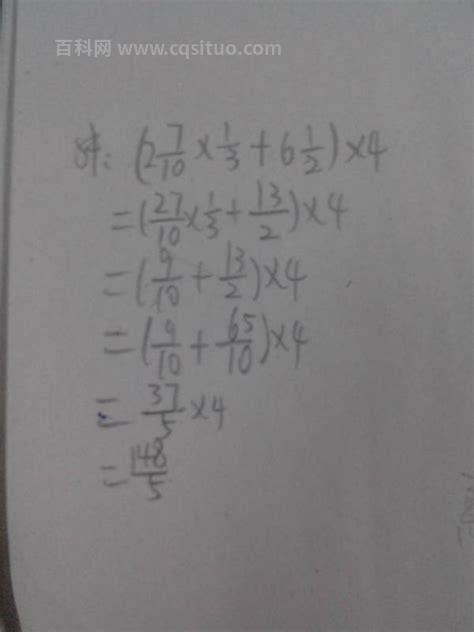 百科网 www.cqsituo.com
解: (2 7/10 × 1/3 + 6 1/2) × 4
= (27/10 × 1/3 + 13/2) × 4
= (9/10 + 13/2) × 4
= (9/10 + 65/10) × 4
= 37/5 × 4
= 148/5